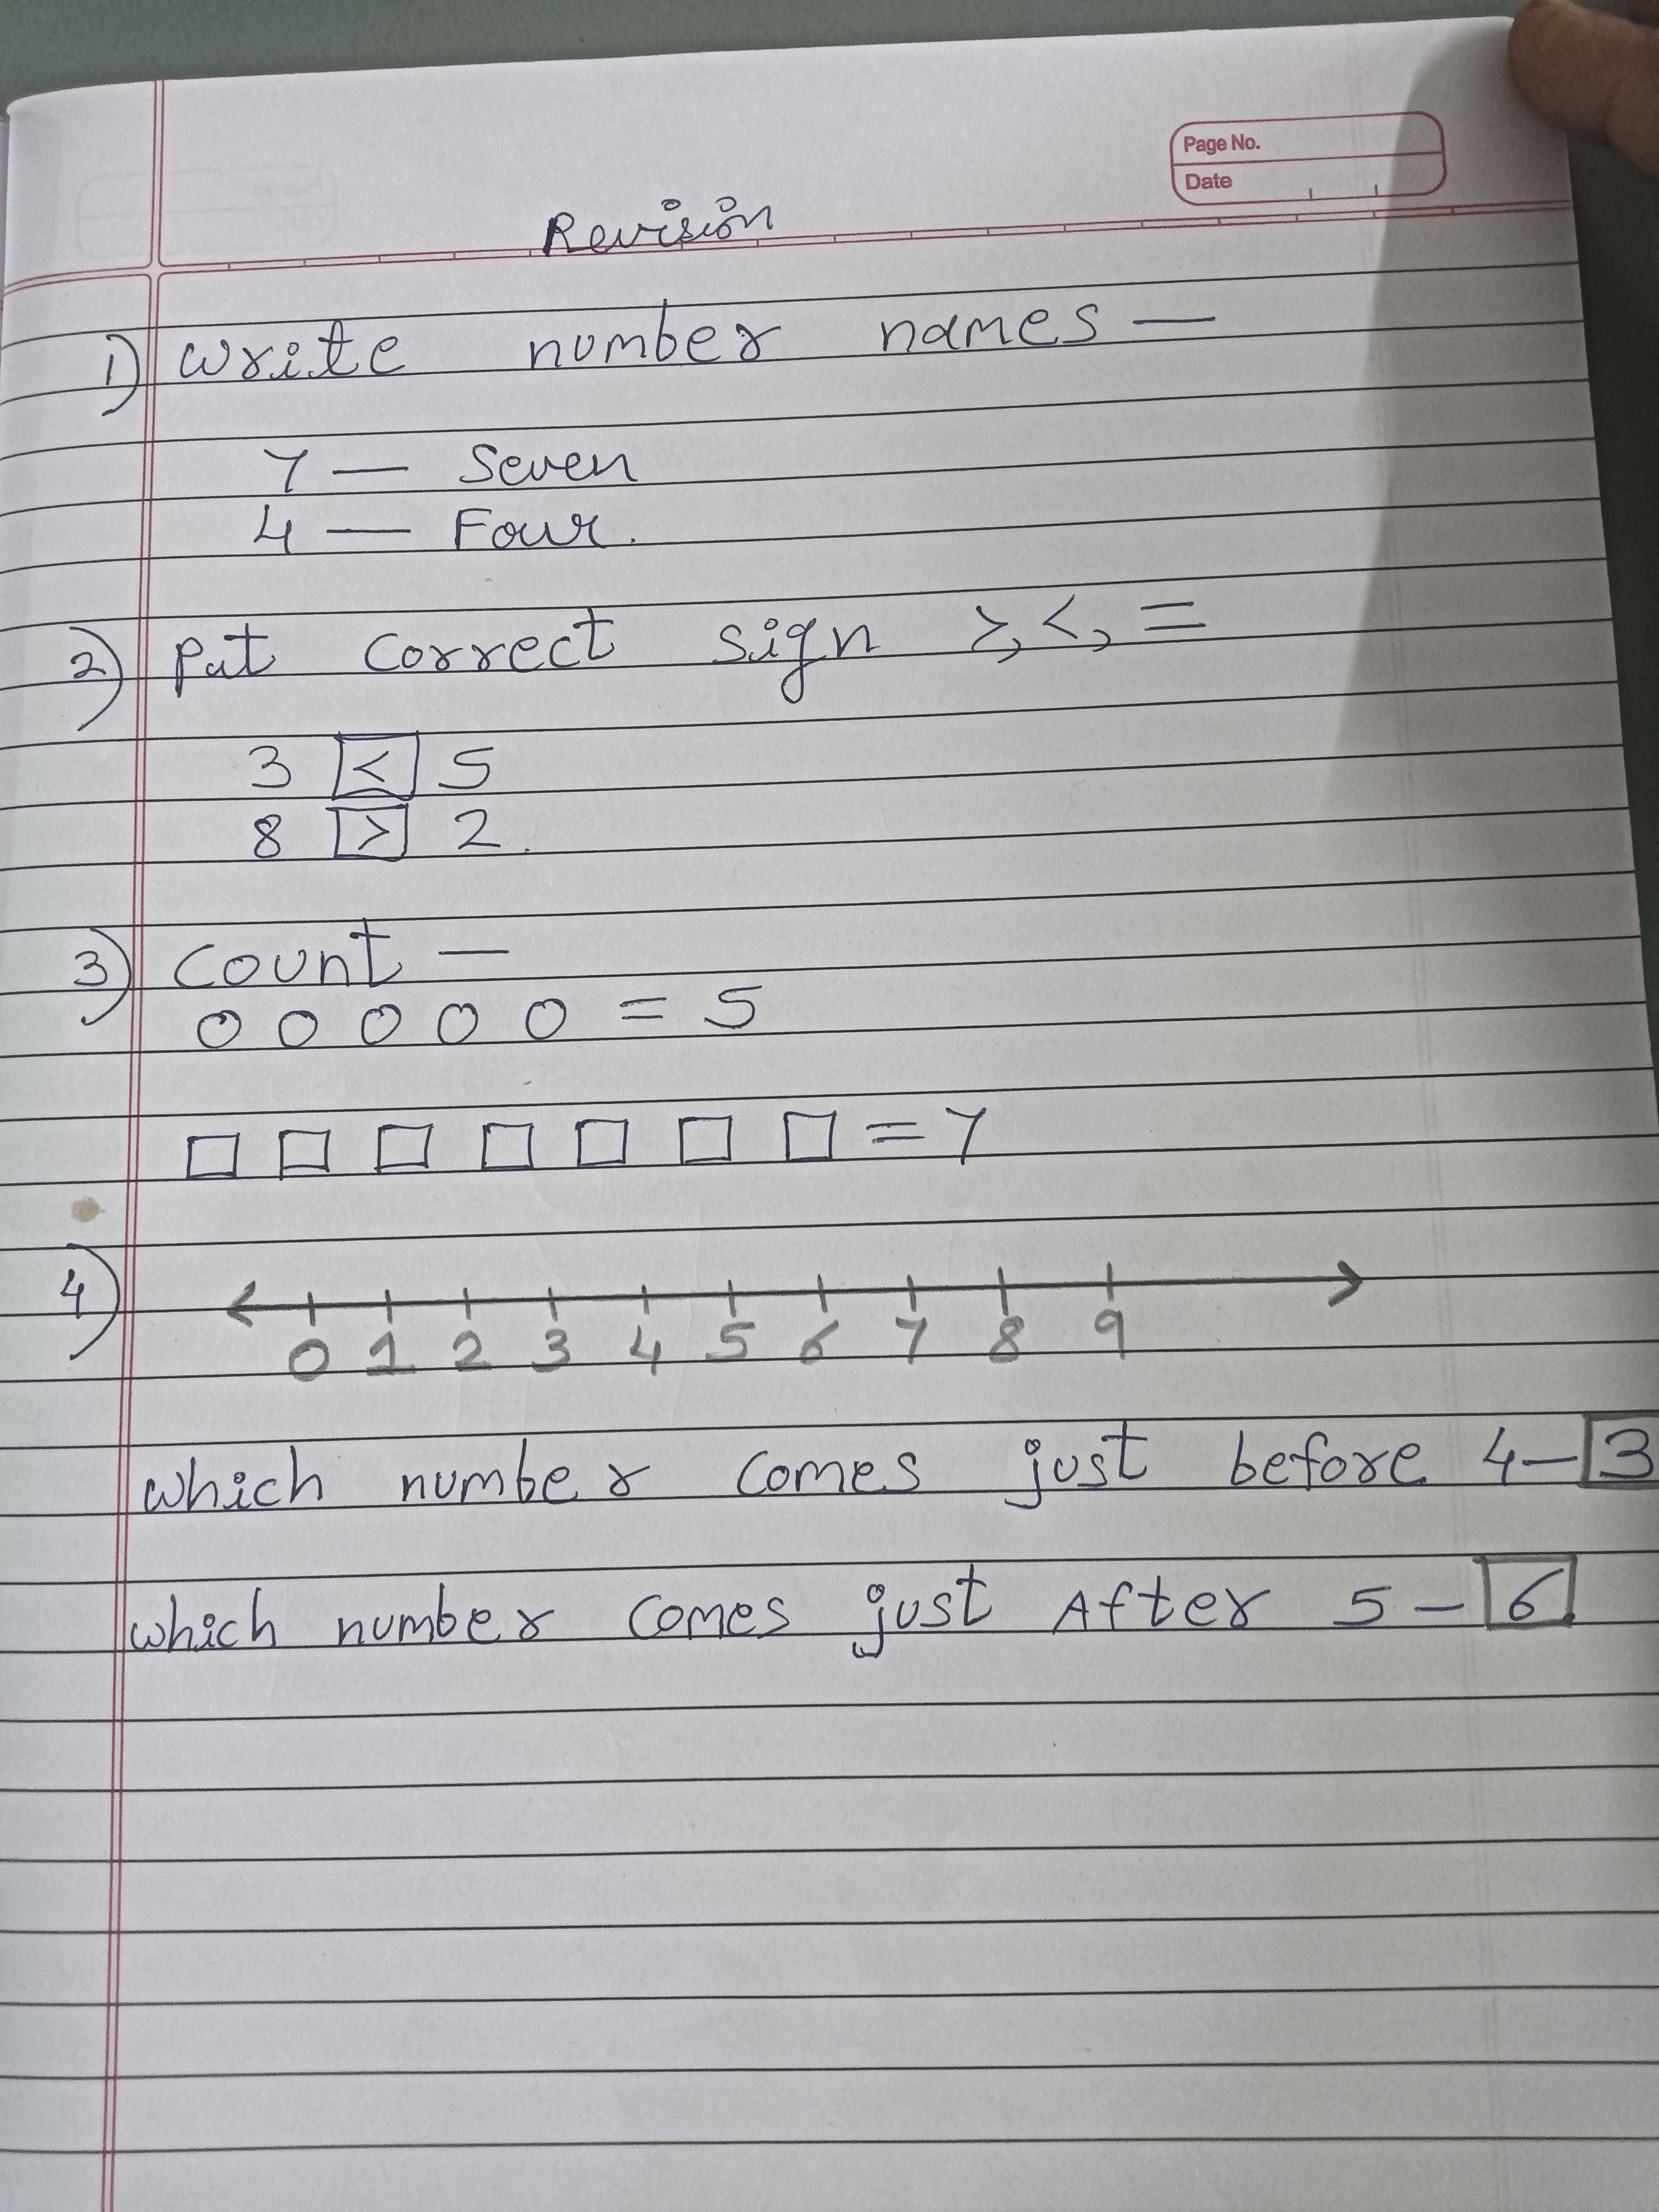 Page No.
Date
Revision
1) Write number names —
7 — Seven
4 — Four.
2) Put correct sign >, <, =
3 < 5
8 > 2.
3) Count —
O O O O O = 5
□ □ □ □ □ □ □ = 7
4)
0 1 2 3 4 5 6 7 8 9
which number comes just before 4 — 3
which number comes just After 5 — 6.